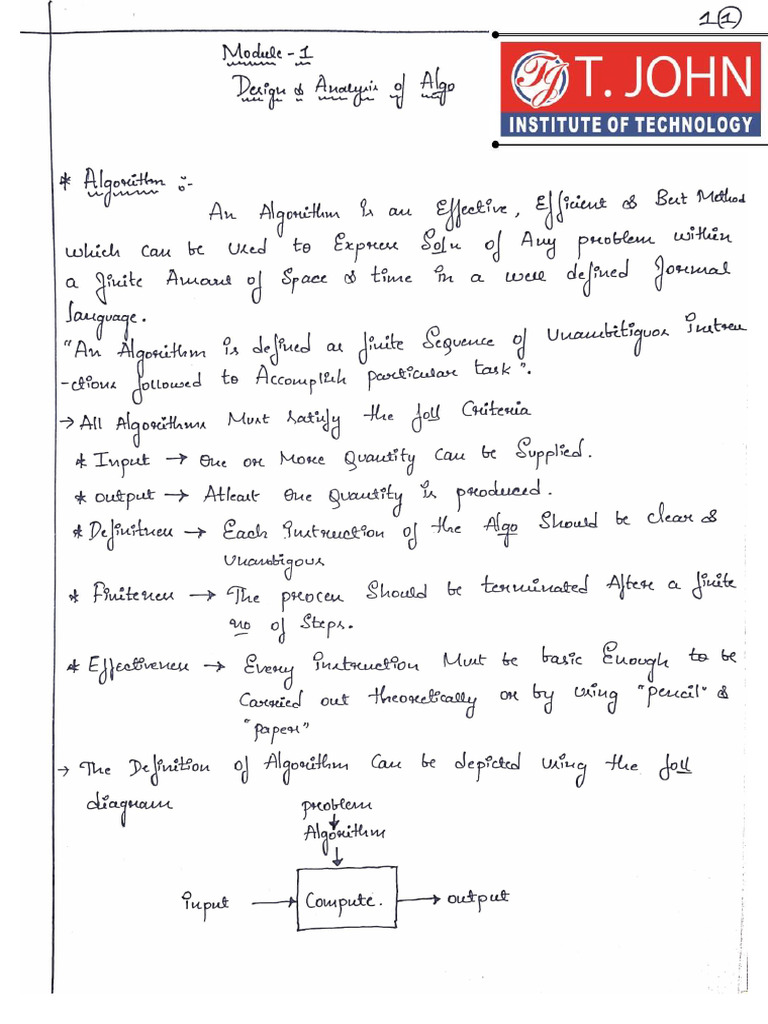 1(1)
Module-1
Design & Analysis of Algo
T. JOHN
INSTITUTE OF TECHNOLOGY
* Algorithm :-
An Algorithm is an Effective, Efficient & Best Method
which can be used to Express Soln of Any problem within
a finite Amount of Space & time in a well defined formal
language.
"An Algorithm is defined as finite Sequence of Unambitiguos instru
-ctions followed to Accomplish particular task".
→ All Algorithms Must satisfy the foll Criteria
* Input → One or More Quantity can be Supplied.
* output → Atleast One Quantity is produced.
* Definitness → Each instruction of the Algo Should be clear &
Unambigous
* Finiteness → The process Should be terminated After a finite
no of Steps.
* Effectiveness → Every instruction Must be basic Enough to be
Carried out theoretically or by using "pencil" &
"paper"
→ The Definition of Algorithm Can be depicted using the foll
diagram
problem
Algorithm
input → Compute. → output